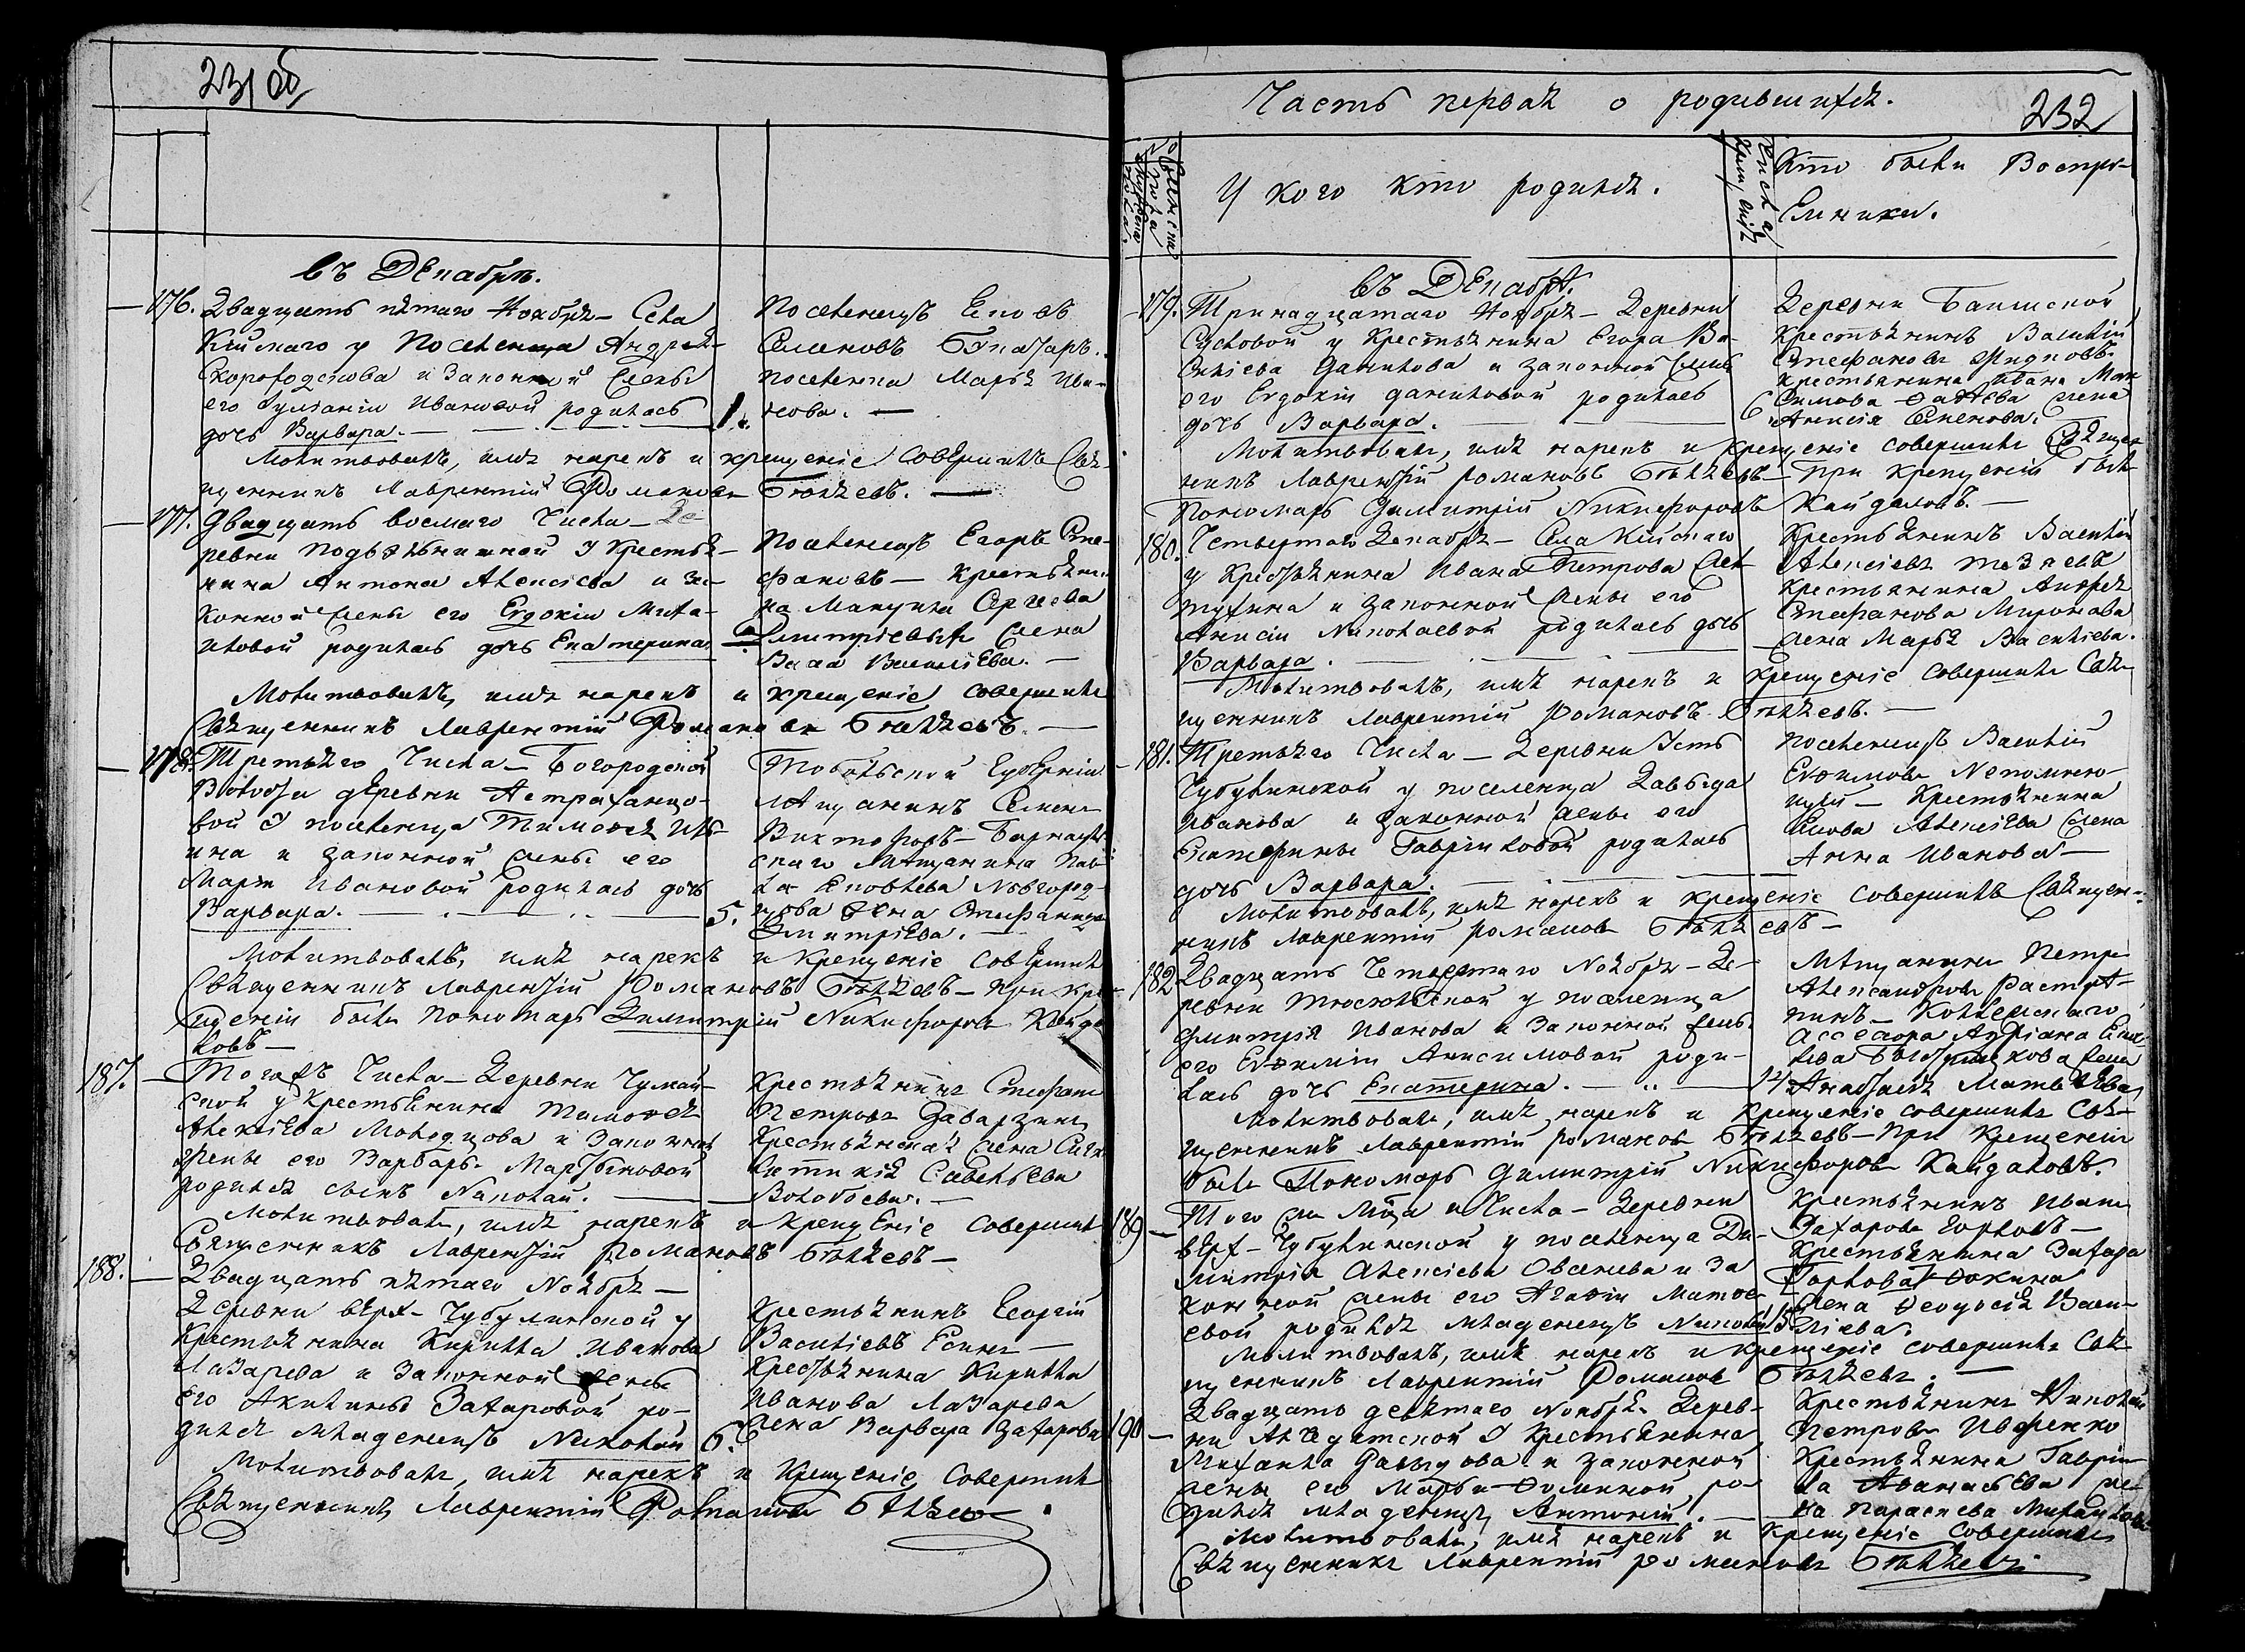 231 об
въ Декабрѣ.
176. Двадцать пятаго Ноября – Села
Кійскаго у Поселенца Андрея
Скороходсова и Законной жены
его Іуліаніи Ивановой родилась
дочь Варвара.
Поселенецъ Еповъ
Семеновъ
поселенка Марья Ива-
нова.
1.
Молитвовалъ, имя нарекъ и крещеніе совершилъ Свя-
щенникъ Лаврентій Романовъ Бѣляевъ.
177. Двадцать восмаго Числа – Де-
ревни Подъ у Крестья-
нина Антона Алексѣева и За-
конной жены его Евдокіи Миха-
иловой родилась дочь Екатерина
Поселенецъ Егоръ Сте-
фановъ – Крестьяни-
на Сергѣева
Дмитріевыхъ жена
Васильева.
Молитвовалъ, имя нарекъ и крещеніе совершилъ
Священникъ Лаврентій Романовъ Бѣляевъ.
178. Третьяго Числа – Богородской
Волости деревни Астраханцо-
вой у поселенца Тимофея Иль-
ина и законной жены его
Марѳы Ивановой родилась дочь
Варвара.
5.
Тобольской Губерніи
Мѣщанинъ Семенъ
Викторовъ – Барнауль-
скаго Мѣщанина Пав-
ла Яковлева Новгород-
цова жена Стефанида
Дмитріева.
Молитвовалъ, имя нарекъ и Крещеніе совершилъ
Священникъ Лаврентій Романовъ Бѣляевъ – при Кре-
щеніи былъ Пономарь Димитрій Никифоровъ Кайда-
ловъ –
187. Тогожъ Числа – Деревни Чумай-
ской у Крестьянина Тимофея
Алексѣева Молодцова и Законной
жены его Варвары Мартыновой
родился сынъ Николай.
Крестьянинъ Стефанъ
Петровъ Заварзинъ
Крестьянская жена
Савельева
Волобоева.
Молитвовалъ, имя нарекъ и крещеніе совершилъ
Священникъ Лаврентій Романовъ Бѣляевъ –
188. Двадцать пятаго Ноября –
Деревни верх-Чубулинской у
Крестьянина Кирилла Иванова
Лазарева и Законной жены
его Акилины Захаровой ро-
дился младенецъ Николай
6.
Крестьянинъ Георгій
Васильевъ Есинъ –
Крестьянина Кирилла
Иванова Лазарева
жена Варвара Захарова
Молитвовалъ, имя нарекъ и Крещеніе Совершилъ
Священникъ Лаврентій Романовъ Бѣляевъ.
Часть первая о родившихся.
232
У кого кто родился.
Кто были Воспрі-
Емники.
въ Декабрѣ.
179. Тринадцатаго Ноября – Деревни
Сусловой у Крестьянина Егора Ва-
силіева Данилова и законной жены
его Евдокіи Даниловой родилась
дочь Варвара.
Деревни Баимской
Крестьянинъ Василій
Стефановъ Жидковъ
крестьянина Ивана Мак-
симова Фадѣева жена
Анисія Семенова.
Молитвовалъ, имя нарекъ и крещеніе совершилъ Священ-
никъ Лаврентій Романовъ Бѣляевъ – При Крещеніи былъ
Пономарь Димитрій Никифоровъ Кайдаловъ. –
180. Четвертаго Декабря – Села Кійскаго
у Крестьянина Ивана Петрова
и Законной жены его
Анисіи Николаевой родилась дочь
Варвара.
Крестьянинъ Василій
Алексѣевъ
Крестьянина Андрея
Стефанова Миронова
жена Марья Василіева.
Молитвовалъ, имя нарекъ и Крещеніе Совершилъ Свя-
щенникъ Лаврентій Романовъ Бѣляевъ. –
181. Третьяго Числа – Деревни Усть
Чубулинской у поселенца Давыда
Иванова и Законной жены его
Екатерины Гавриловой родилась
дочь Варвара.
поселенецъ Василій
Евфимовъ Непомню-
щій – Крестьянина
Якова Алексѣева жена
Анна Иванова –
Молитвовалъ, имя нарекъ и крещеніе совершилъ Священ-
никъ Лаврентій Романовъ Бѣляевъ –
182. Двадцать Четвертаго Ноября – Де-
ревни Тюсюльской у поселенца
Дмитрія Иванова и Законной жены
его Евфиміи Анисимовой роди-
лась дочь Екатерина.
Мѣщанинъ Петръ
Александровъ
Коллежскаго
ассесора Адріана
жена
Анастасія Матвѣева
Молитвовалъ, имя нарекъ и Крещеніе совершилъ Свя-
щенникъ Лаврентій Романовъ Бѣляевъ – При Крещеніи
былъ Пономарь Димитрій Никифоровъ Кайдаловъ.
189 – Того же Мца и Числа – Деревни
верх-Чубулинской у поселенца Ди-
митрія Алексѣева Овсеева и За
конной жены его Агафіи Матвѣ-
евой родился младенецъ Николай
Крестьянинъ Иванъ
Захаровъ Горловъ –
Крестьянина Захара
Горлова Фокина
жена Феодосія Васи-
ліева.
Молитвовалъ, имя нарекъ и крещеніе совершилъ Свя
щенникъ Лаврентій Романовъ Бѣляевъ. –
190 – Двадцать девятаго Ноября. Дерев-
ни Акчедатской у Крестьянина
Михаила Давыдова и законной
жены его Марьи Фоминой ро-
дился младенецъ Антоній.
Крестьянинъ Николай
Петровъ Ивченко
Крестьянина Гаврі-
ла Аванасьева же-
на Параскева Михайлова
Молитвовалъ, имя нарекъ и Крещеніе Совершилъ
Священникъ Лаврентій Романовъ Бѣляевъ.